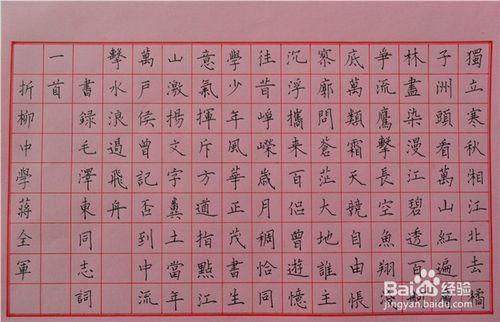 獨立寒秋湘江北去橘
子洲頭看萬山紅遍
林盡染漫江碧透百舸
爭流鷹擊長空魚翔
底萬類霜天競自由悵
寥廓問蒼茫大地誰主
沉浮攜来百侣曾遊憶
往昔崢嶸歲月稠恰同
學少年風華正茂書生
意氣揮斥方遒指點江
山激揚文字糞土當年
萬户侯曾記否到中流
擊水浪遏飛舟
書錄毛澤東同志詞
一首
折柳中學蔣全軍
Baidu 经验
jingyan.baidu.com